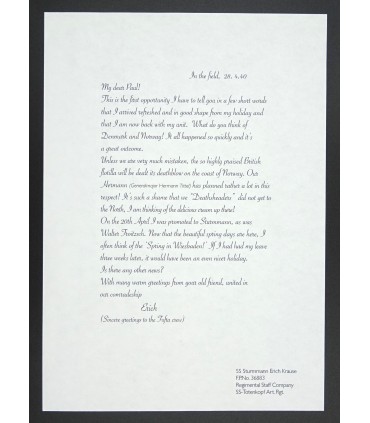 In the field, 28. 4.40
My dear Paul!
This is the first opportunity I have to tell you in a few short words
that I arrived refreshed and in good shape from my holiday and
that I am now back with my unit. What do you think of
Denmark and Norway! It all happened so quickly and it's
a great outcome.
Unless we are very much mistaken, the so highly praised British
flotilla will be dealt its deathblow on the coast of Norway. Our
Hermann has planned a lot in this
respect! It's such a shame that we "Deathsheaders" did not get to
the North, I am thinking of the delicious cream up there!
On the 20th April I was promoted to Sturmmann, as was
Walter Now that the beautiful spring days are here, I
often think of the "Spring in Wiesbaden!" If I had had my leave
three weeks later, it would have been an even nicer holiday.
Is there any other news?
With many warm greetings from your old friend, united in
our comradeship
Erich
(Sincere greetings to the crew)
SS Sturmmann Erich Krause
FPNo. 36883
Regimental Staff Company
SS-Totenkopf Art. Rgt.